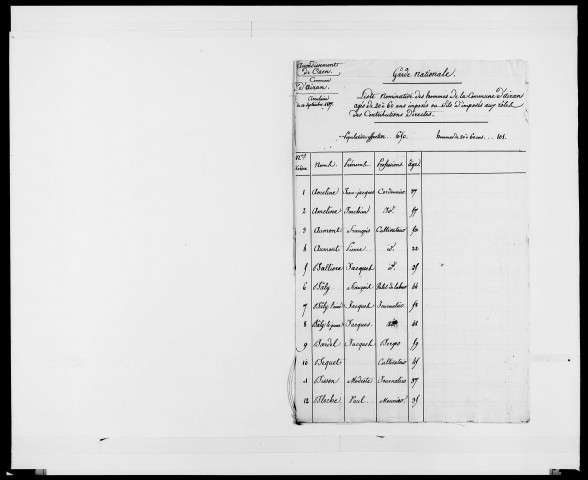 Arrondissement
de Caen.
Commune
d'Airan.
Circulaire
Garde nationale.
Liste nominative des hommes de la Commune d'Airan
agés de 20 à 60 ans imposés ou fils d'imposés aux rôles
des Contributions Directes.
Population effective
hommes de 20 à 60 ans 101.
Nos d'ordre Noms. Prénoms Professions âge
1 Ameline Jean-jacques Cordonnier
2 Ameline Joachim id.
3 Aumont François Cultivateur
4 Aumont Pierre id. 22
5 Jacques id.
6 Bély François
7 Bély l'ainé Jacques Journalier
8 Bély le jeune Jacques
9 Bardel Jacques Berger
10 Bequet Cultivateur
11 Bisson Modeste Journalier 37
12 Paul Meunier